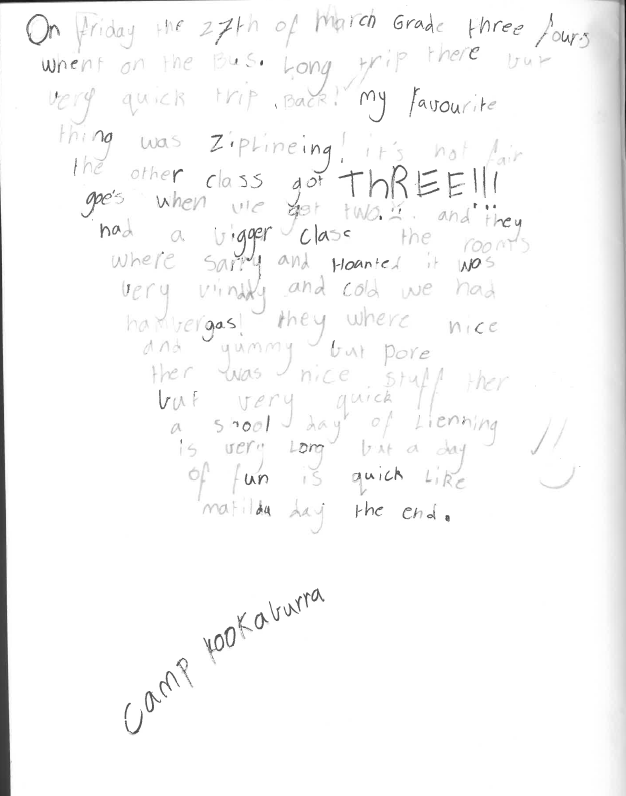 On Friday the 27th of March Grade three fours
whent on the Bus. Long trip there but
very quick trip Back! my favourite
thing was Ziplineing! it's not fair
the other class got THREE!!!
goe's when we got two. and they
had a bigger class the rooms
where sarry and Hoanted it was
very windy and cold we had
hambergas! they where nice
and yummy but pore
ther was nice stuff ther
but very quick
a shool day of Lienning
is very Long but a day
of fun is quick Like
matilda day the end.
Camp Kookaburra